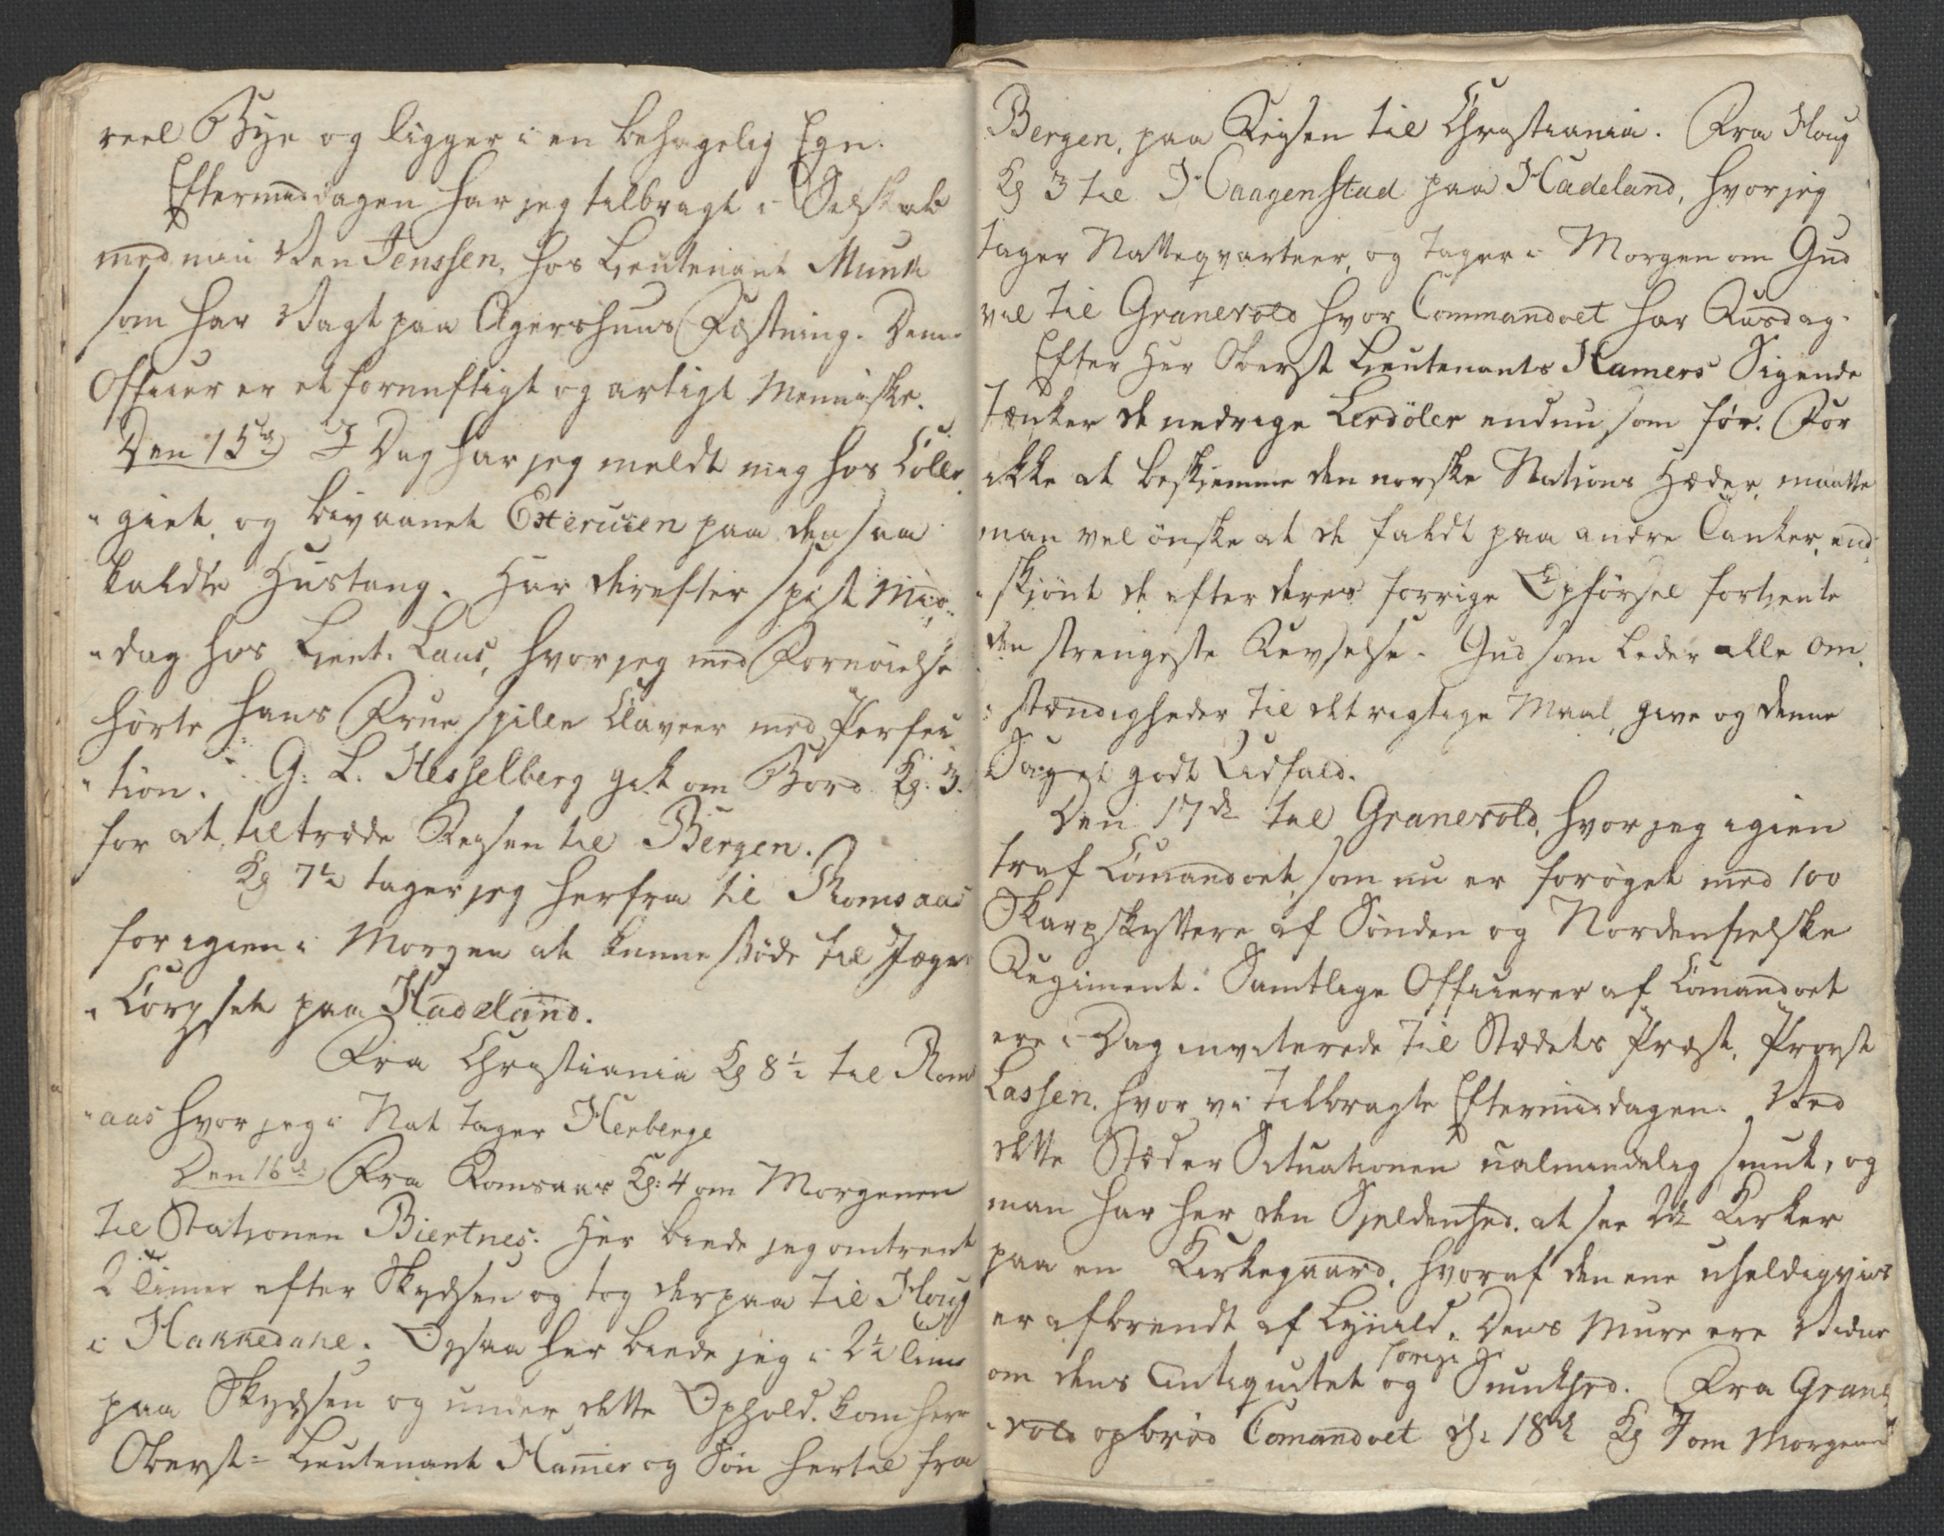 reel Bye og ligger i en behagelig Egn.
Eftermiddagen har jeg tilbragt i Selskab
med min Ven Jenssen, hos Lieutenant Munk
som har Vagt paa Agershuus Fæstning. Denne
Officer er et fornuftigt og artigt Menniske.
Den 15de I Dag har jeg meldt mig hos Colle-
giet, og bivaanet Exercicen paa den saa
kaldte Hustang. Har derefter spist Mid-
dag hos Lieut. Laus, hvor jeg med Fornöielse
hörte hans Frue spille Claveer med Perfec
tion. G. L. Hesselberg gik om Bord Kl. 3.
for at tiltræde Reysen til Bergen.
Kl 7½ tager jeg herfra til Romsaas
for igien i Morgen at kunne støde til Jæger
Corpset paa Hadeland.
Fra Christiania Kl 8½ til Roms
aas hvor jeg i Nat tager Herberge
Den 16de Fra Romsaas Kl: 4 om Morgenen
til Stationen Biertnes. Her biede jeg omtrent
2 Timer efter Skydsen og tog derpaa til Houg
i Hakkedahl. Ogsaa her biede jeg i 2½ Time
paa Skydsen og under dette Ophold kom Herr
Oberst-Lieutenant Hamer og Sön hertil fra
Bergen, paa Reysen til Christiania. Fra Houg
Kl 3 til Haagenstad paa Hadeland, hvor jeg
tager Natteqvarteer, og tager i Morgen om Gud
vil til Granevold hvor Commandoet har Rasdag.
Efter Her Oberst Lieutenants Hamers Sigende
tænker de nedrige Lerdöler endnu som før. For
ikke at beskjemme den norske Nations Hæder, maatte
man vel önske at de faldt paa andre Tanker, end
skjönt de efter deres forrige Opförsel fortiente
den strengeste Revselse. Gud som leder alle Om
stændigheder til det rigtige Maal, give og denne
Sag et godt Udfald.
Den 17de til Granevold, hvor jeg igien
traf Comandoet, som nu er forøget med 100
Skarpskyttere af Sönden og Nordenfielske
Regiment. Samtlige Officerer af Comandoet
ere i Dag inviterede til Stedets Præst, Provst
Lassen, hvor vi tilbragte Eftermiddagen. Ved
dette Sted er Situationen ualmindelig smuk, og
man har her den Sjeldenhed at see 2de Kirker
paa en Kirkegaard, hvoraf den ene uheldigviis
er afbrendt af Lynild. Dens Mure ere Vidne
om dens Antiquitet og forrige Smukhed. Fra Grane
vold opbröd Comandoet d: 18de Kl 7 om Morgenen